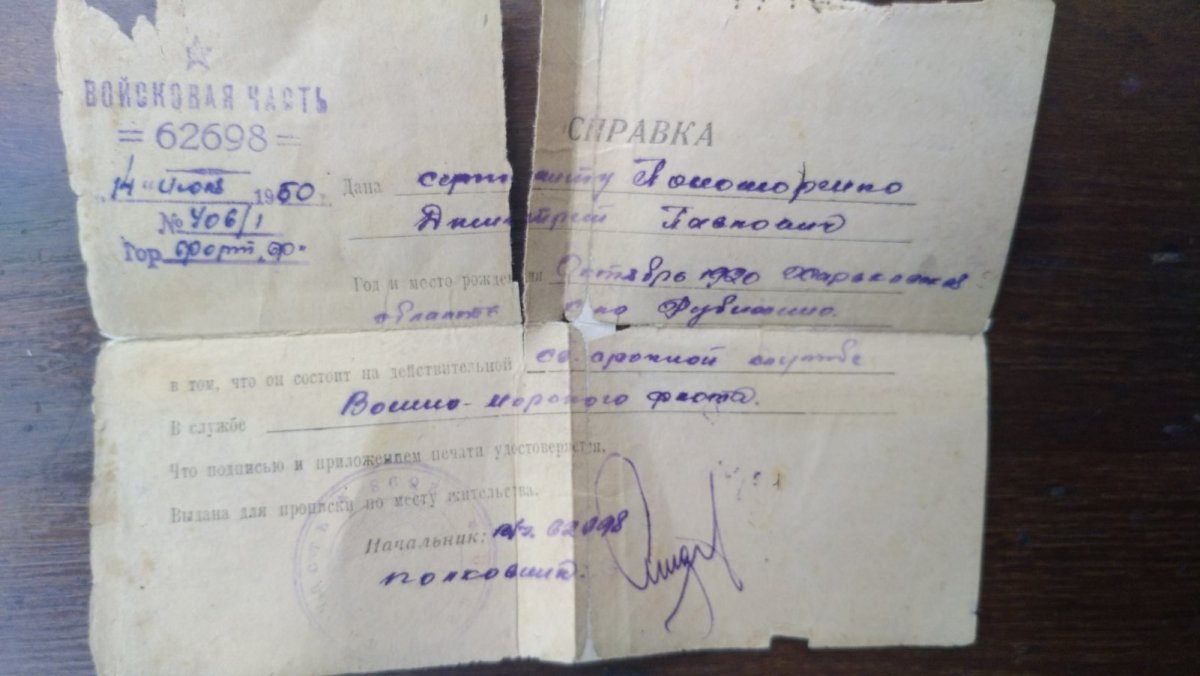 ВОЙСКОВАЯ ЧАСТЬ
= 62698 =
14 " Июля 1950.
№ 406/1
Гор. Форт.
СПРАВКА
Дана сержанту Пономаренко
Дмитрий Павлович
Год и место рождения Октябрь 1920 Харьковская
область с-ло Рубежно.
в том, что он состоит на действительной св. срочной службе
В службе Военно-морского флота.
Что подписью и приложением печати удостоверяется.
Выдана для прописки по месту жительства.
Начальник: в/ч. 62698
полковник.